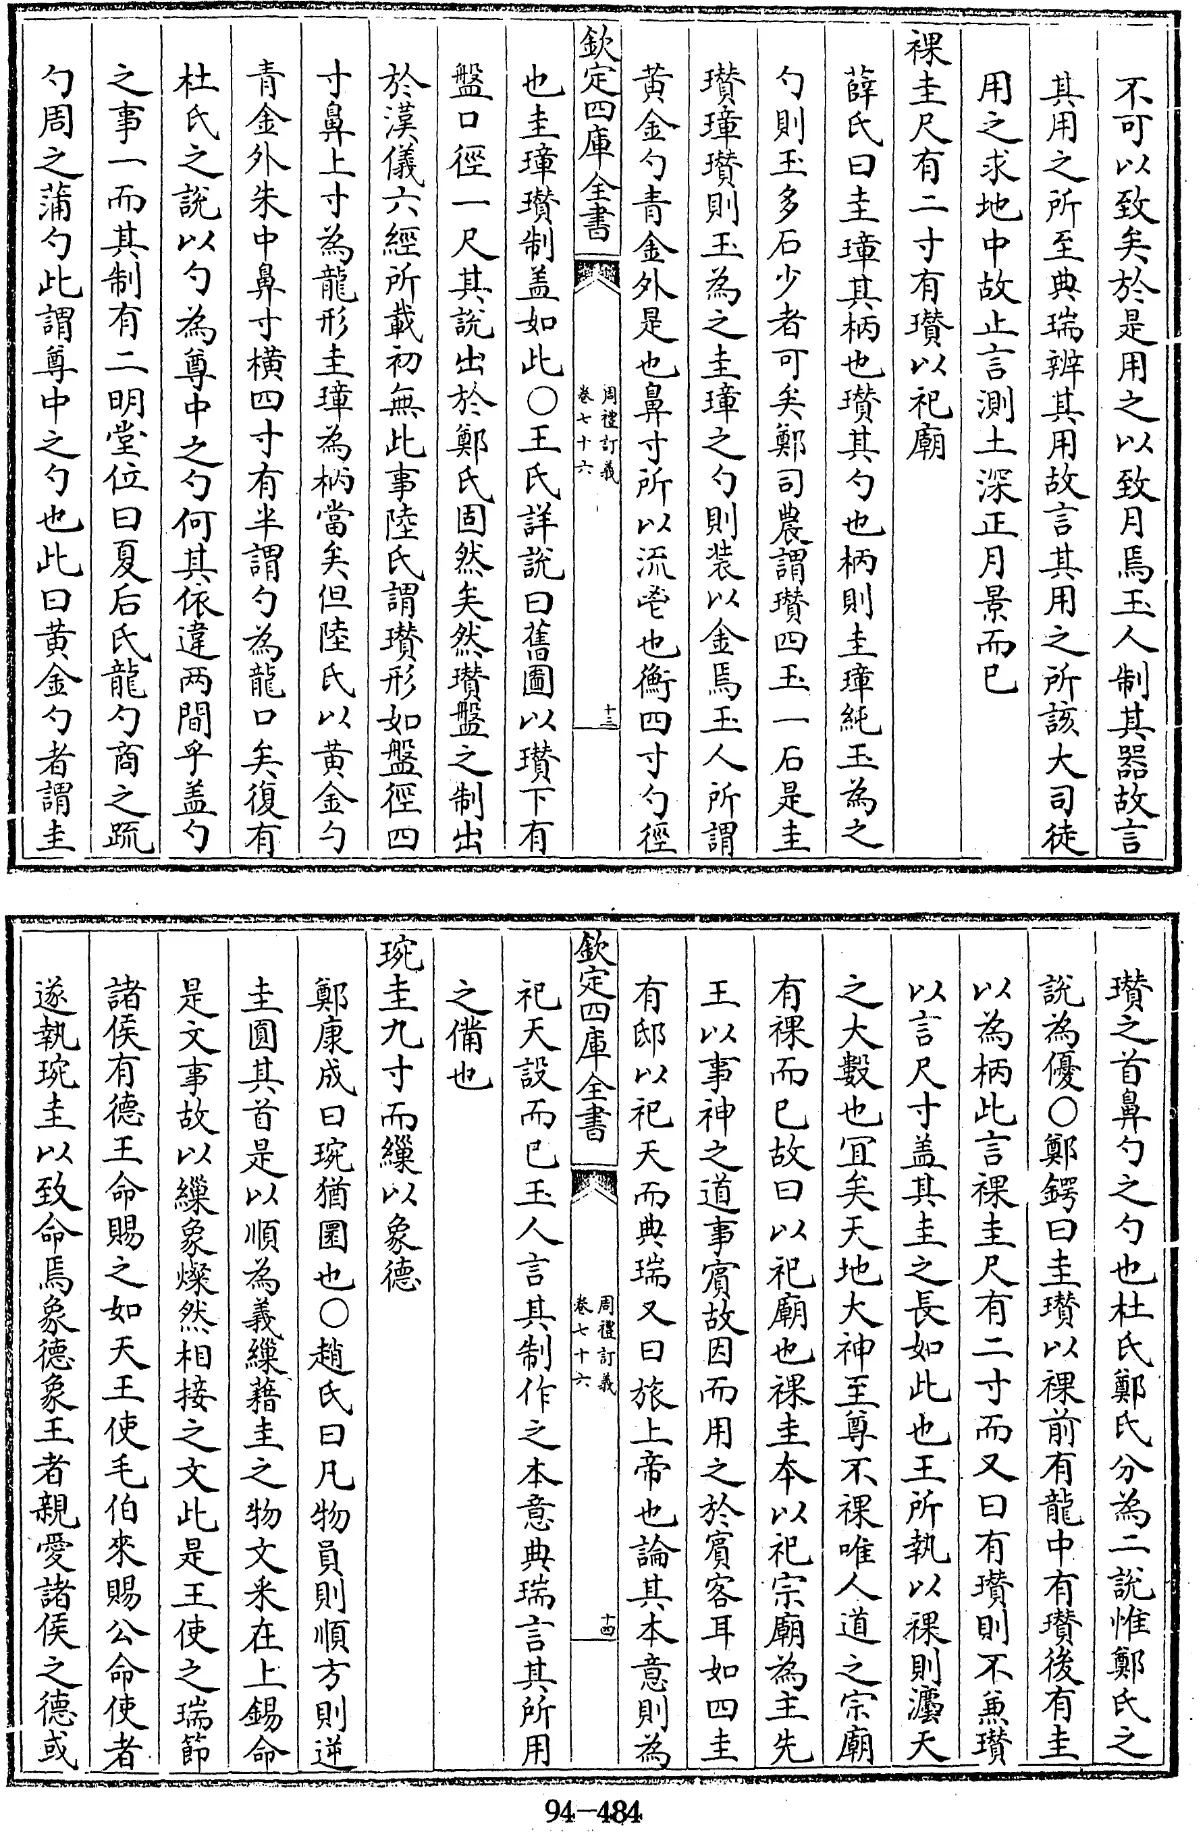 不可以致矣於是用之以致月焉玉人制其器故言
其用之所至典瑞辨其用故言其用之所該大司徒
用之求地中故止言測土深正月景而已
祼圭尺有二寸有瓚以祀廟
薛氏曰圭璋其柄也瓚其勺也柄則圭璋純玉為之
勺則玉多石少者可矣鄭司農謂瓚四玉一石是圭
瓚璋瓚則玉為之圭璋之勺則裝以金焉玉人所謂
黃金勺青金外是也鼻寸所以流鬯也衡四寸勺徑
欽定四庫全書
周禮訂義
卷七十六
十三
也圭璋瓚制盖如此○王氏詳說曰舊圖以瓚下有
盤口徑一尺其說出於鄭氏固然矣然瓚盤之制出
於漢儀六經所載初無此事陸氏謂瓚形如盤徑四
寸鼻上寸為龍形圭璋為柄當矣但陸氏以黃金勺
青金外朱中鼻寸橫四寸有半謂勺為龍口矣復有
杜氏之說以勺為尊中之勺何其依違两間乎盖勺
之事一而其制有二明堂位曰夏后氏龍勺商之疏
勺周之蒲勺此謂尊中之勺也此曰黃金勺者謂圭
瓚之首鼻勺之勺也杜氏鄭氏分為二說惟鄭氏之
說為優○鄭鍔曰圭瓚以祼前有龍中有瓚後有圭
以為柄此言祼圭尺有二寸而又曰有瓚則不兼瓚
以言尺寸盖其圭之長如此也王所執以祼則灋天
之大數也宜矣天地大神至尊不祼唯人道之宗廟
有祼而已故曰以祀廟也祼圭本以祀宗廟為主先
王以事神之道事賓故因而用之於賓客耳如四圭
有邸以祀天而典瑞又曰旅上帝也論其本意則為
欽定四庫全書
周禮訂義
卷七十六
十四
祀天設而已玉人言其制作之本意典瑞言其所用
之備也
琬圭九寸而繅以象德
鄭康成曰琬猶圜也○趙氏曰凡物員則順方則逆
圭圓其首是以順為義繅藉圭之物文釆在上錫命
是文事故以繅象燦然相接之文此是王使之瑞節
諸侯有德王命賜之如天王使毛伯來賜公命使者
遂執琬圭以致命焉象德象王者親愛諸侯之德或
94-484